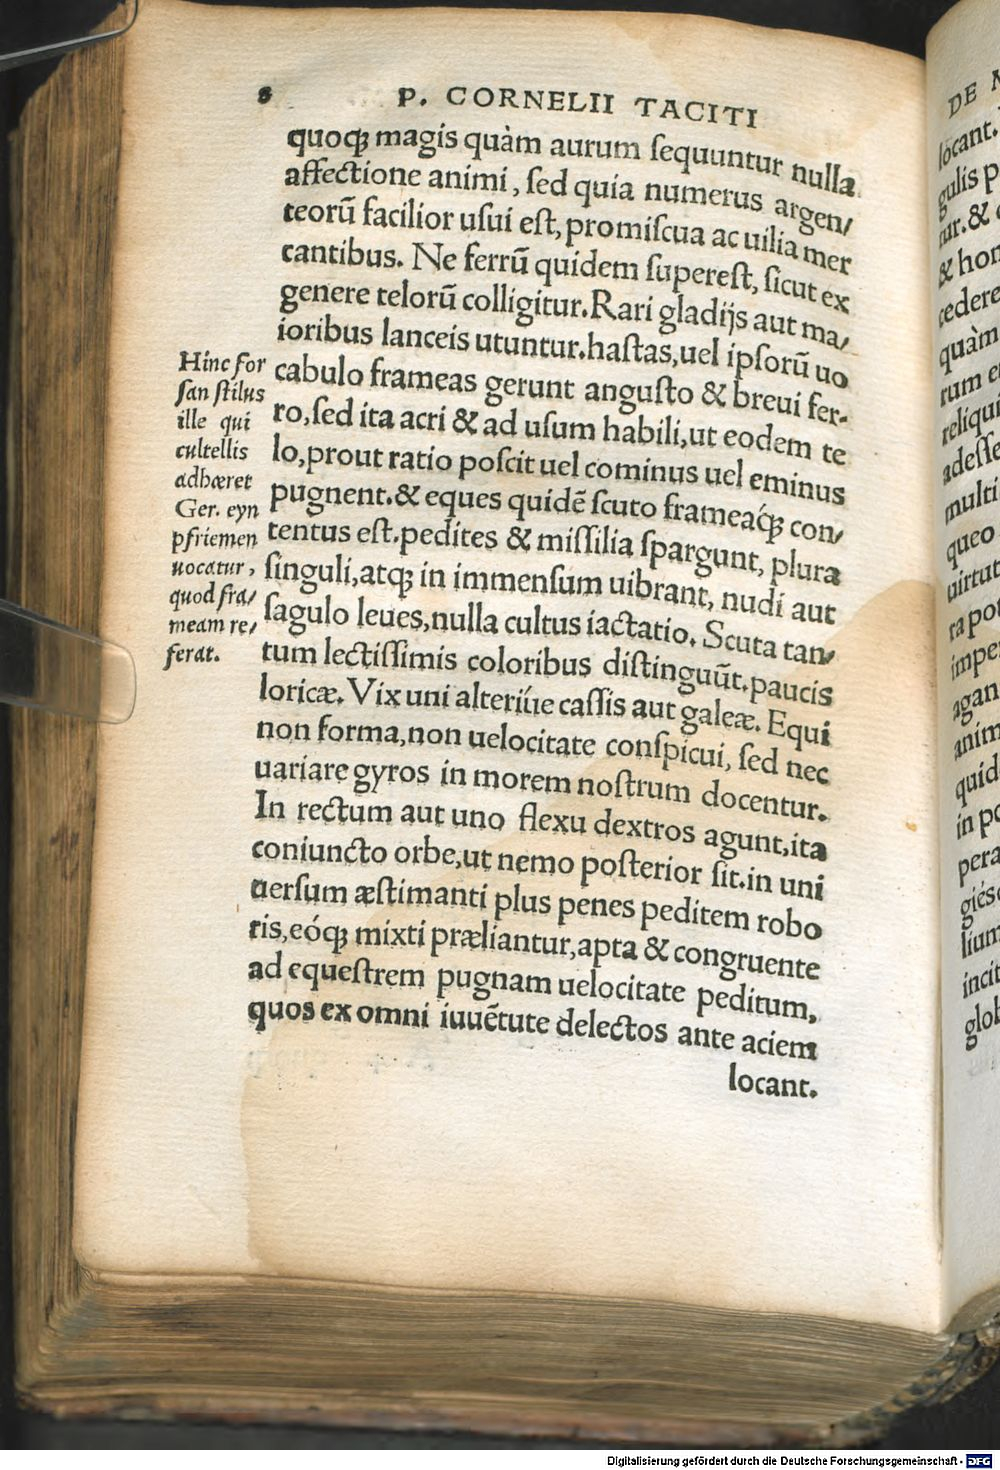 8 P. CORNELII TACITI
quoq́ꝫ magis quàm aurum ſequuntur nulla
affectione animi, ſed quia numerus argen/
teorũ facilior uſui eſt, promiſcua ac uilia mer
cantibus. Ne ferrũ quidem ſupereſt, ſicut ex
genere telorũ colligitur. Rari gladijs aut ma/
ioribus lanceis utuntur. haſtas, uel ipſorũ uo
cabulo frameas gerunt anguſto & breui fer-
ro, ſed ita acri & ad uſum habili, ut eodem te
lo, prout ratio poſcit uel cominus uel eminus
pugnent. & eques quidẽ ſcuto frameaq́ꝫ con/
tentus eſt. pedites & miſſilia ſpargunt, plura
ſinguli, atqꝫ in immenſum uibrant, nudi aut
ſagulo leues, nulla cultus iactatio. Scuta tan/
tum lectiſſimis coloribus diſtinguũt. paucis
loricæ. Vix uni alteriúe caſſis aut galeæ. Equi
non forma, non uelocitate conſpicui, ſed nec
uariare gyros in morem noſtrum docentur.
In rectum aut uno flexu dextros agunt, ita
coniuncto orbe, ut nemo poſterior ſit. in uni
uerſum æſtimanti plus penes peditem robo
ris, eóqꝫ mixti præliantur, apta & congruente
ad equeſtrem pugnam uelocitate peditum,
quos ex omni iuuẽtute delectos ante aciem
locant.
Hinc for
ſan ſtilus
ille qui
cultellis
adhæret
Ger. eyn
pfriemen
uocatur,
quod fra/
meam re/
ferat.
DE N
locant.
gulis p
tur. &
& hon
cedere
quàm
rum e
reliqui
adeſſe
multi
queo
uirtut
ra pot
impe
agan
anim
quid
in po
pera
gieſ
lium
incit
glob
Digitalisierung gefördert durch die Deutsche Forschungsgemeinschaft - DFG